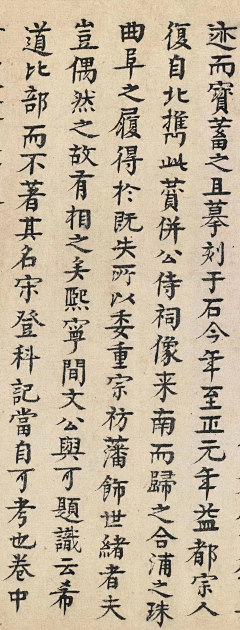 迹而寳蓄之且摹刻于石今年至正元年益都宗人
復自北携此賛併公侍祠像来南而歸之合浦之珠
曲阜之履得於既失所以委重宗祊藩飾世緒者夫
豈偶然之故有相之矣熙寧間文公與可題識云希
道比部而不著其名宋登科記當自可考也卷中